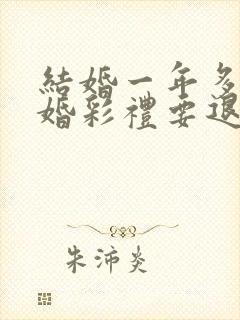 結婚一年多
婚彩禮要退
朱沛炎